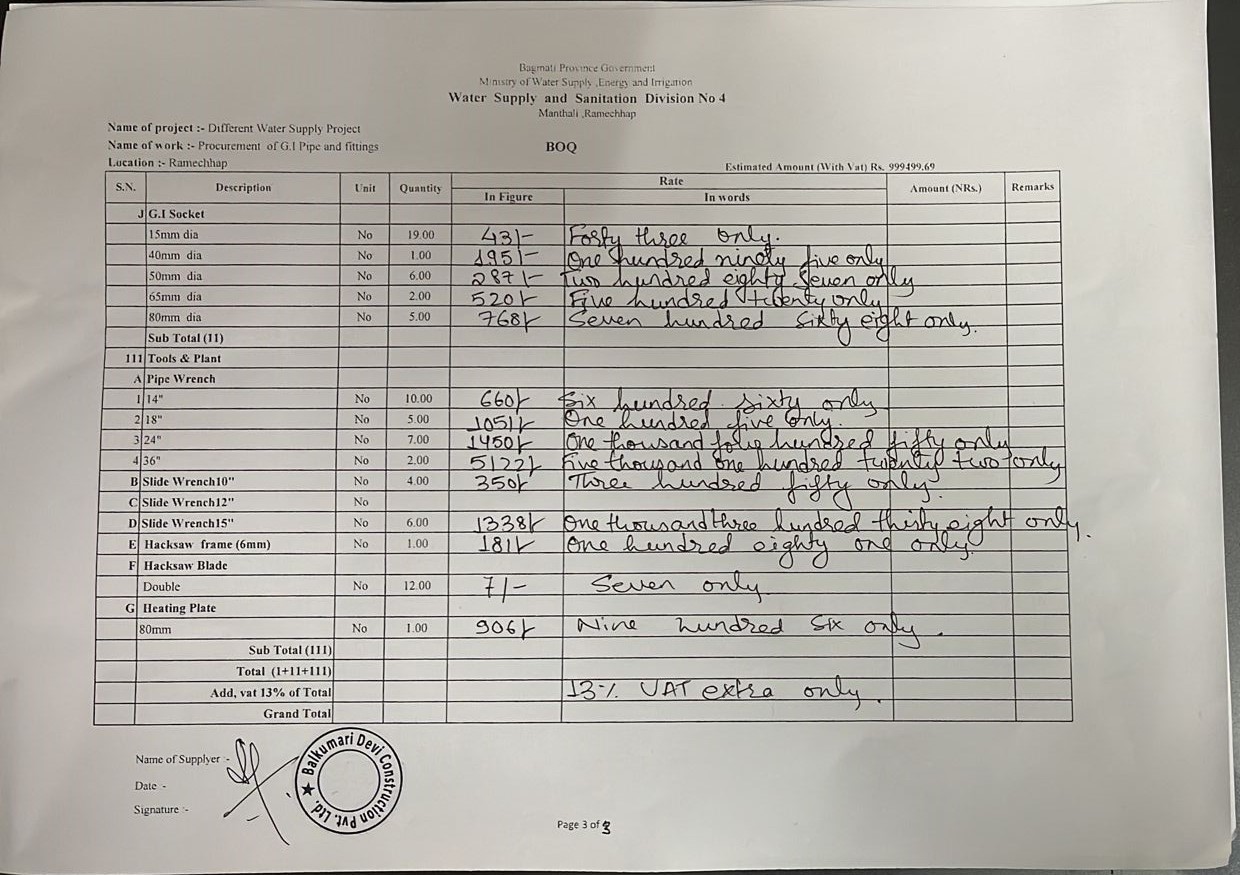 Bagmati Province Government
Ministry of Water Supply ,Energy and Irrigation
Water Supply and Sanitation Division No 4
Manthali ,Ramechhap
Name of project :- Different Water Supply Project
Name of work :- Procurement of G.I Pipe and fittings BOQ
Location :- Ramechhap Estimated Amount (With Vat) Rs. 999499.69
S.N. Description Unit Quantity Rate Amount (NRs.) Remarks
In Figure In words
J G.I Socket
15mm dia No 19.00 43/- Forty three only.
40mm dia No 1.00 195/- One hundred ninety five only
50mm dia No 6.00 287/- Two hundred eighty seven only
65mm dia No 2.00 520/- Five hundred twenty only
80mm dia No 5.00 768/- Seven hundred sixty eight only.
Sub Total (11)
111 Tools & Plant
A Pipe Wrench
1 14" No 10.00 660/- Six hundred sixty only
2 18" No 5.00 1051/- One hundred five only.
3 24" No 7.00 1450/- One thousand four hundred fifty only
4 36" No 2.00 5122/- Five thousand one hundred twenty two only
B Slide Wrench10" No 4.00 350/- Three hundred fifty only.
C Slide Wrench12" No
D Slide Wrench15" No 6.00 1338/- One thousand three hundred thirty eight only.
E Hacksaw frame (6mm) No 1.00 181/- One hundred eighty one only.
F Hacksaw Blade
Double No 12.00 7/- Seven only
G Heating Plate
80mm No 1.00 906/- Nine hundred six only.
Sub Total (111)
Total (1+11+111)
Add, vat 13% of Total 13% VAT extra only.
Grand Total
Name of Supplyer -
Date -
Signature :-
Balkumari Devi Construction Pvt. Ltd.
Page 3 of 3